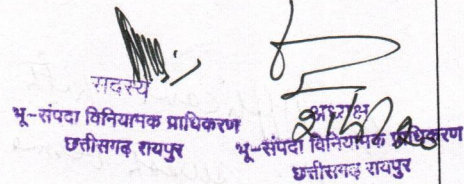 सदस्य
भू-संपदा विनियापक प्राधिकरण
छत्तीसगढ़ रायपुर
अध्यक्ष
भू-संपदा विनियापक प्राधिकरण
छत्तीसगढ़ रायपुर